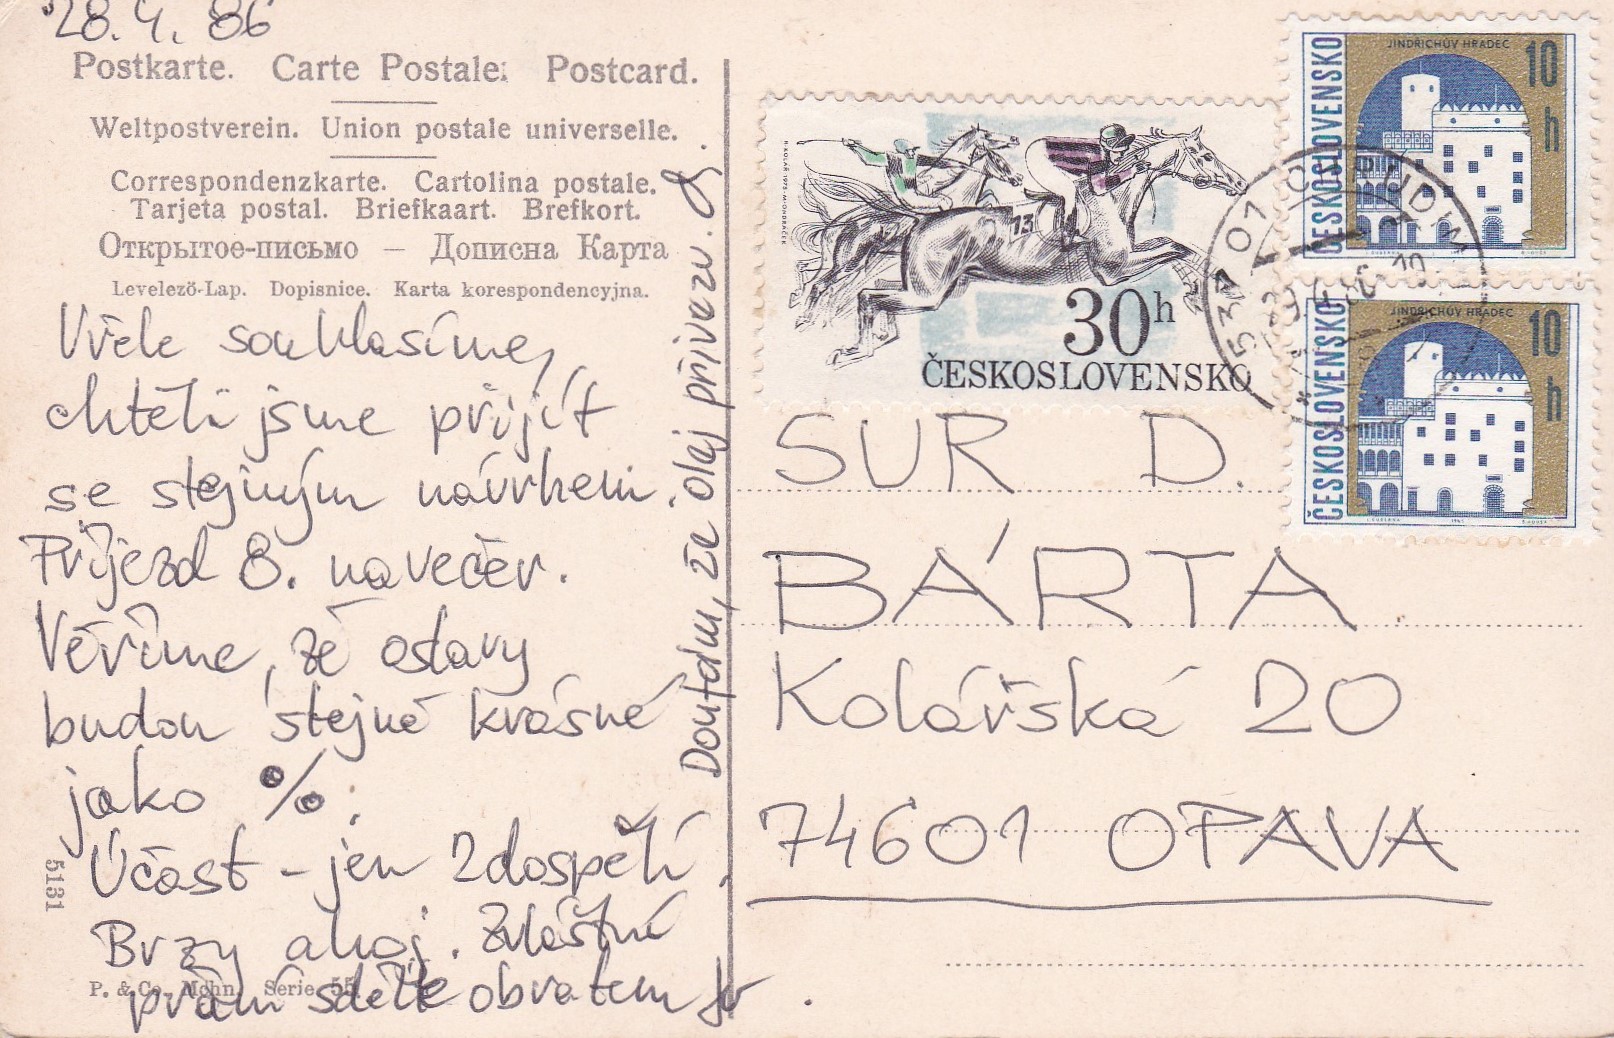 28.4.86
Postkarte. Carte Postale. Postcard.
Weltpostverein. Union postale universelle.
Correspondenzkarte. Cartolina postale.
Tarjeta postal. Briefkaart. Brefkort.
Открытое-письмо — Дописна Карта
Levelező-Lap. Dopisnice. Karta korespondencyjna.
Vřele souhlasíme,
chtěli jsme přijít
se stejným návrhem.
Příjezd 8. navečer.
Věříme, že oslavy
budou stejně krásné
jako %.
Účast - jen 2 dospělí.
Brzy ahoj. Zvláštní
přání sdělte obratem
P. & Co. Mchn. Serie 55
5131
Doufám, že olej přivezu.
R. KOLÁŘ 1978 M. ONDRÁČEK
13
30h
ČESKOSLOVENSKO
JINDŘICHŮV HRADEC
10
h
ČESKOSLOVENSKO
JINDŘICHŮV HRADEC
10
h
ČESKOSLOVENSKO
SUR D.
BÁRTA
Kolářská 20
74601 OPAVA